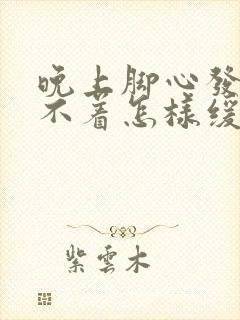 晚上脚心發
不着怎樣緩
紫雲木